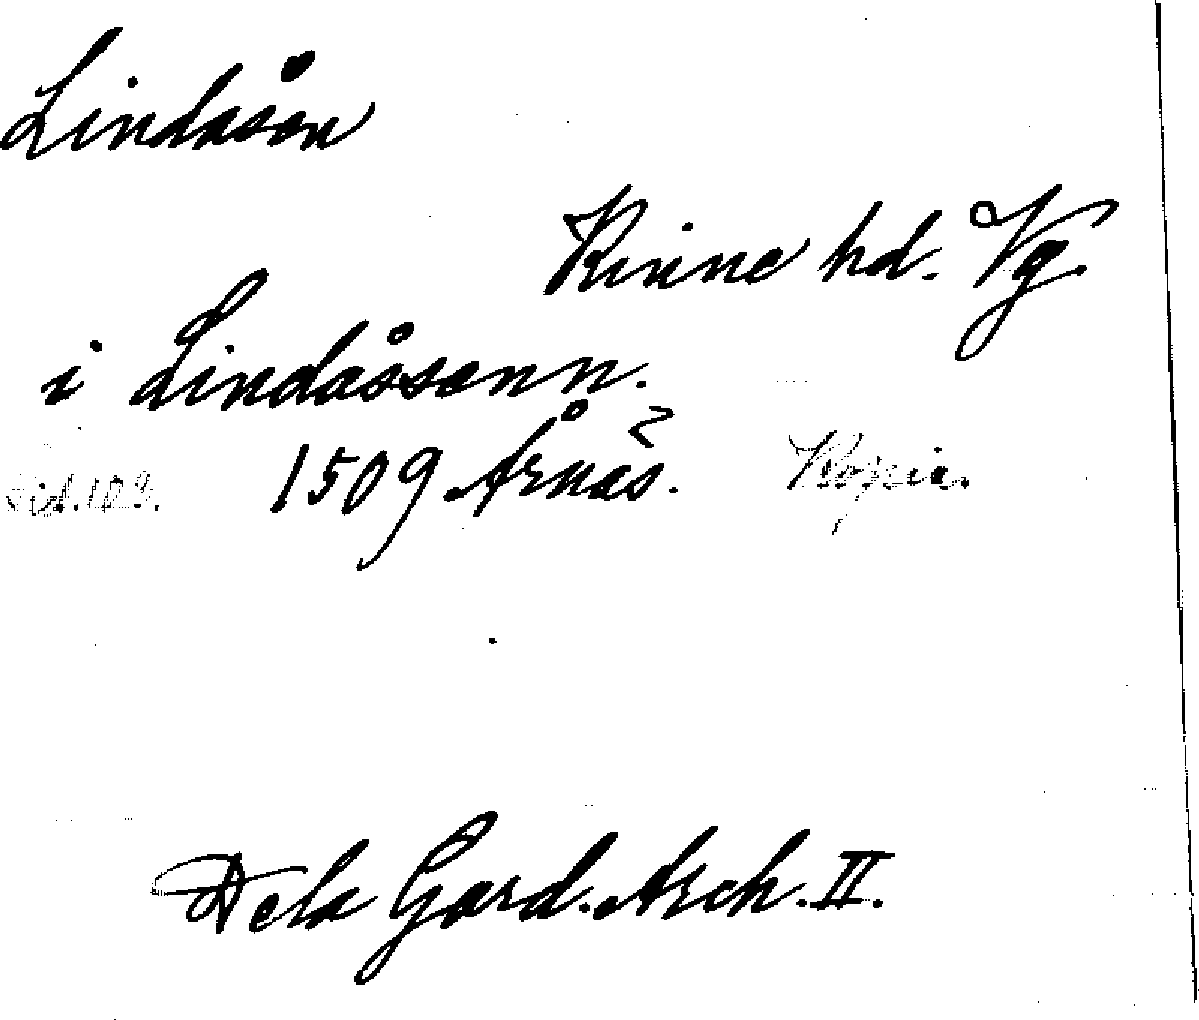 Lindåsen
Kinne hd. Vg.
i Lindåssenn.
sid. 109. 1509 Årnäs. Kopia.
De la Gard. Arch. II.